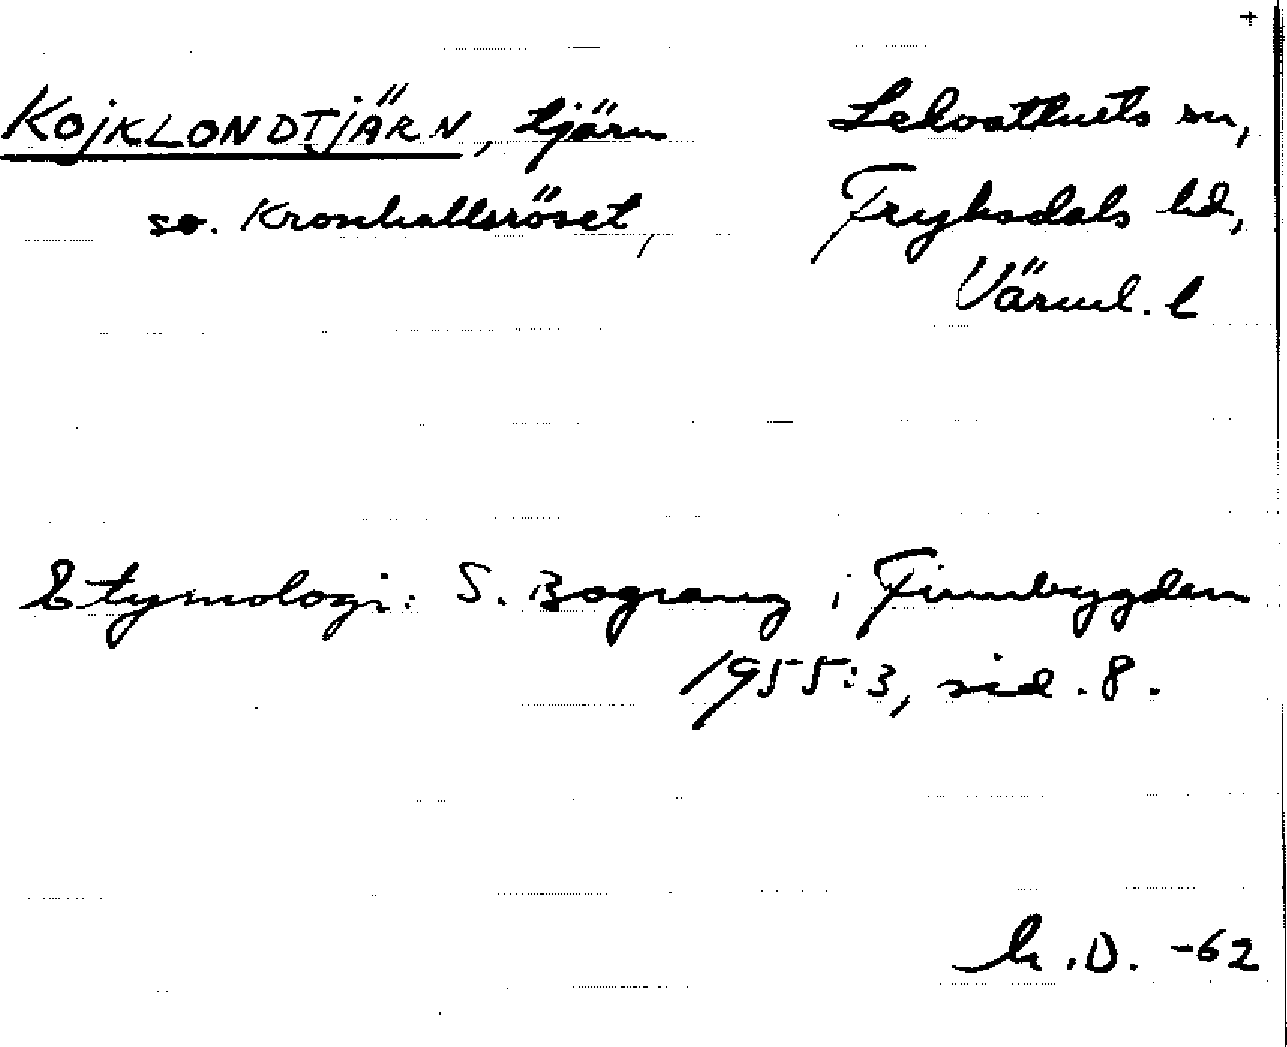 +
KOJKLONDTJÄRN, tjärn Lekvattnets sn,
so. Kronhallsröset, Fryksdals hd,
Värml. l
Etymologi: S. Bograng i Finnbygden
1955:3, sid. 8.
D. -62